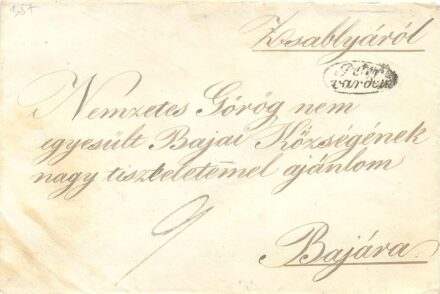 Zsablyáról
Peter
varden
Nemzetes Görög nem
egyesült Bajai Községének
nagy tiszteletem̅el ajánlom
Bajára